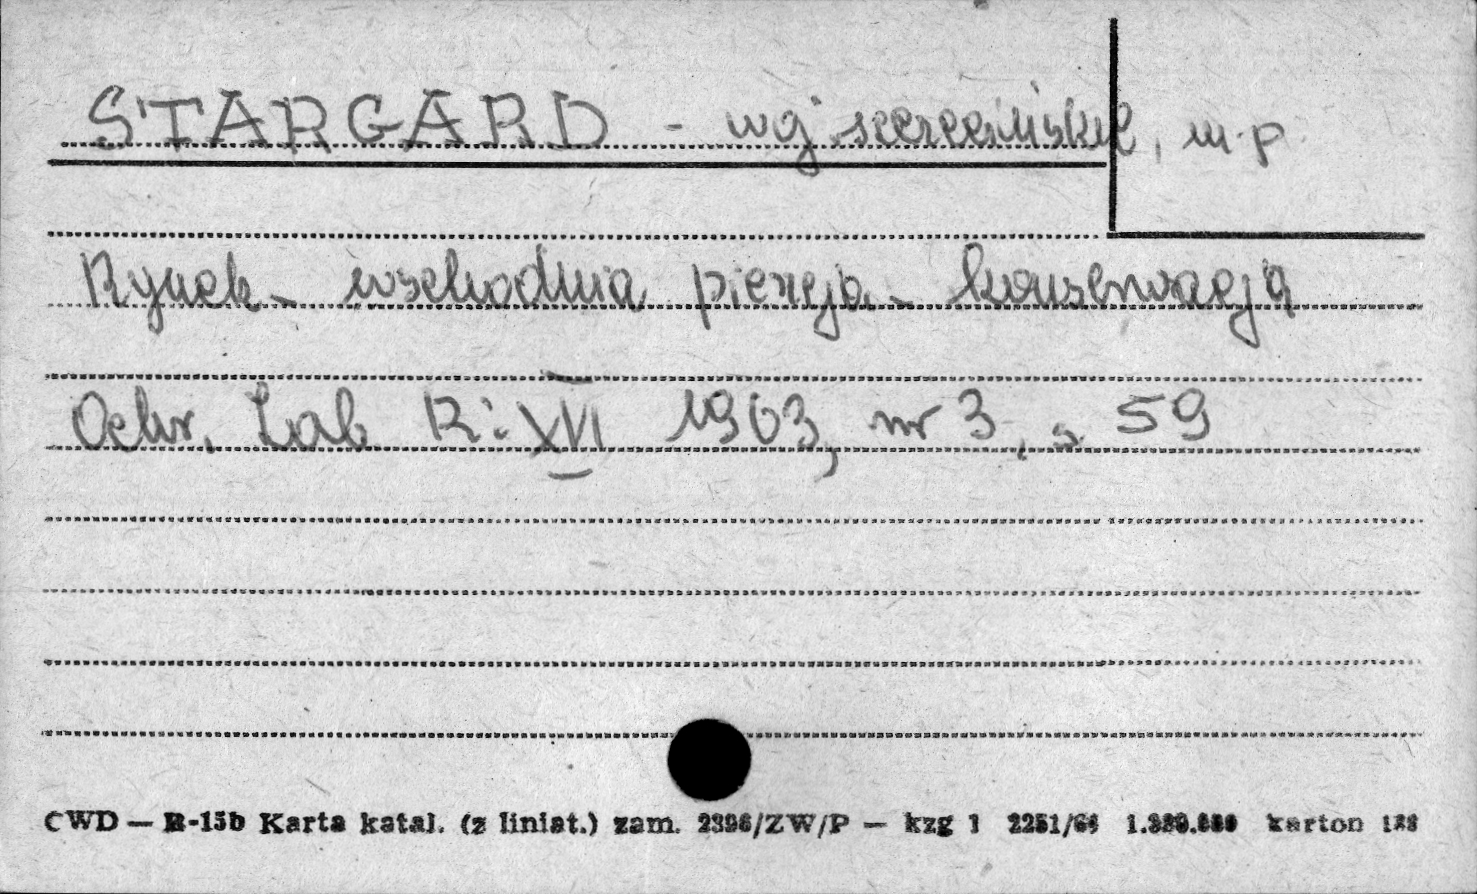 STARGARD - woj szczecińskie, m.p
Rynek - wschodnia pierzeja - konserwacja
Ochr. Zab R: XVI 1963, nr 3, s 59
CWD — R-15b Karta katal. (z liniat.) zam. 2396/ZW/P — kzg 1 2251/64 karton